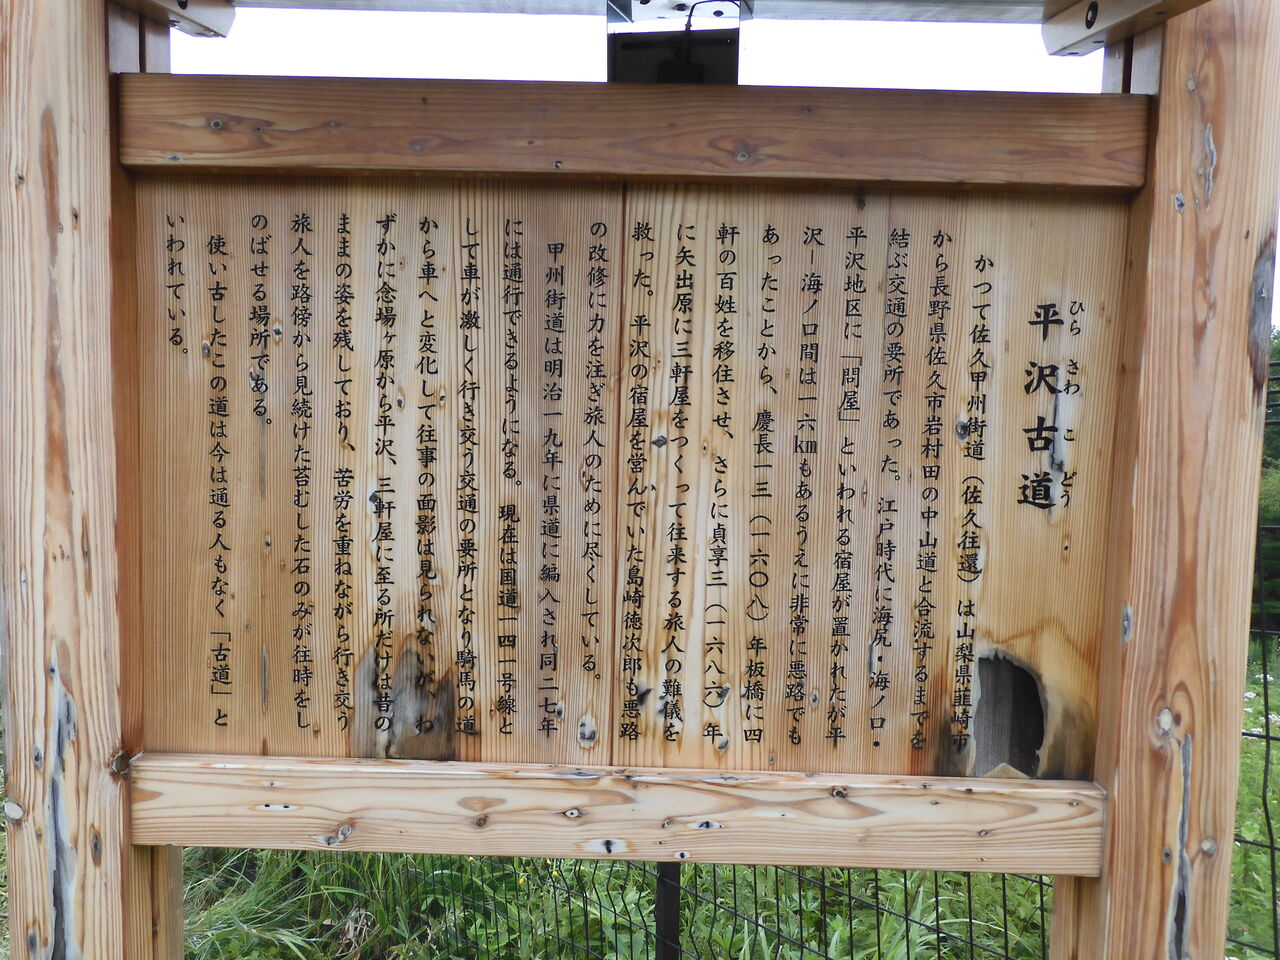 平沢古道
ひらさわこどう
かつて佐久甲州街道（佐久往還）は山梨県韮崎市
から長野県佐久市岩村田の中山道と合流するまでを
結ぶ交通の要所であった。江戸時代に海尻・海ノ口・
平沢地区に「問屋」といわれる宿屋が置かれたが平
沢－海ノ口間は一六kmもあるうえに非常に悪路でも
あったことから、慶長一三（一六〇八）年板橋に四
軒の百姓を移住させ、さらに貞享三（一六八六）年
に矢出原に三軒屋をつくって往来する旅人の難儀を
救った。平沢の宿屋を営んでいた島崎徳次郎も悪路
の改修に力を注ぎ旅人のために尽くしている。
甲州街道は明治一九年に県道に編入され同二七年
には通行できるようになる。現在は国道一四一号線と
して車が激しく行き交う交通の要所となり騎馬の道
から車へと変化して往事の面影は見られないが、わ
ずかに念場ヶ原から平沢、三軒屋に至る所だけは昔の
ままの姿を残しており、苦労を重ねながら行き交う
旅人を路傍から見続けた苔むした石のみが往時をし
のばせる場所である。
使い古したこの道は今は通る人もなく「古道」と
いわれている。